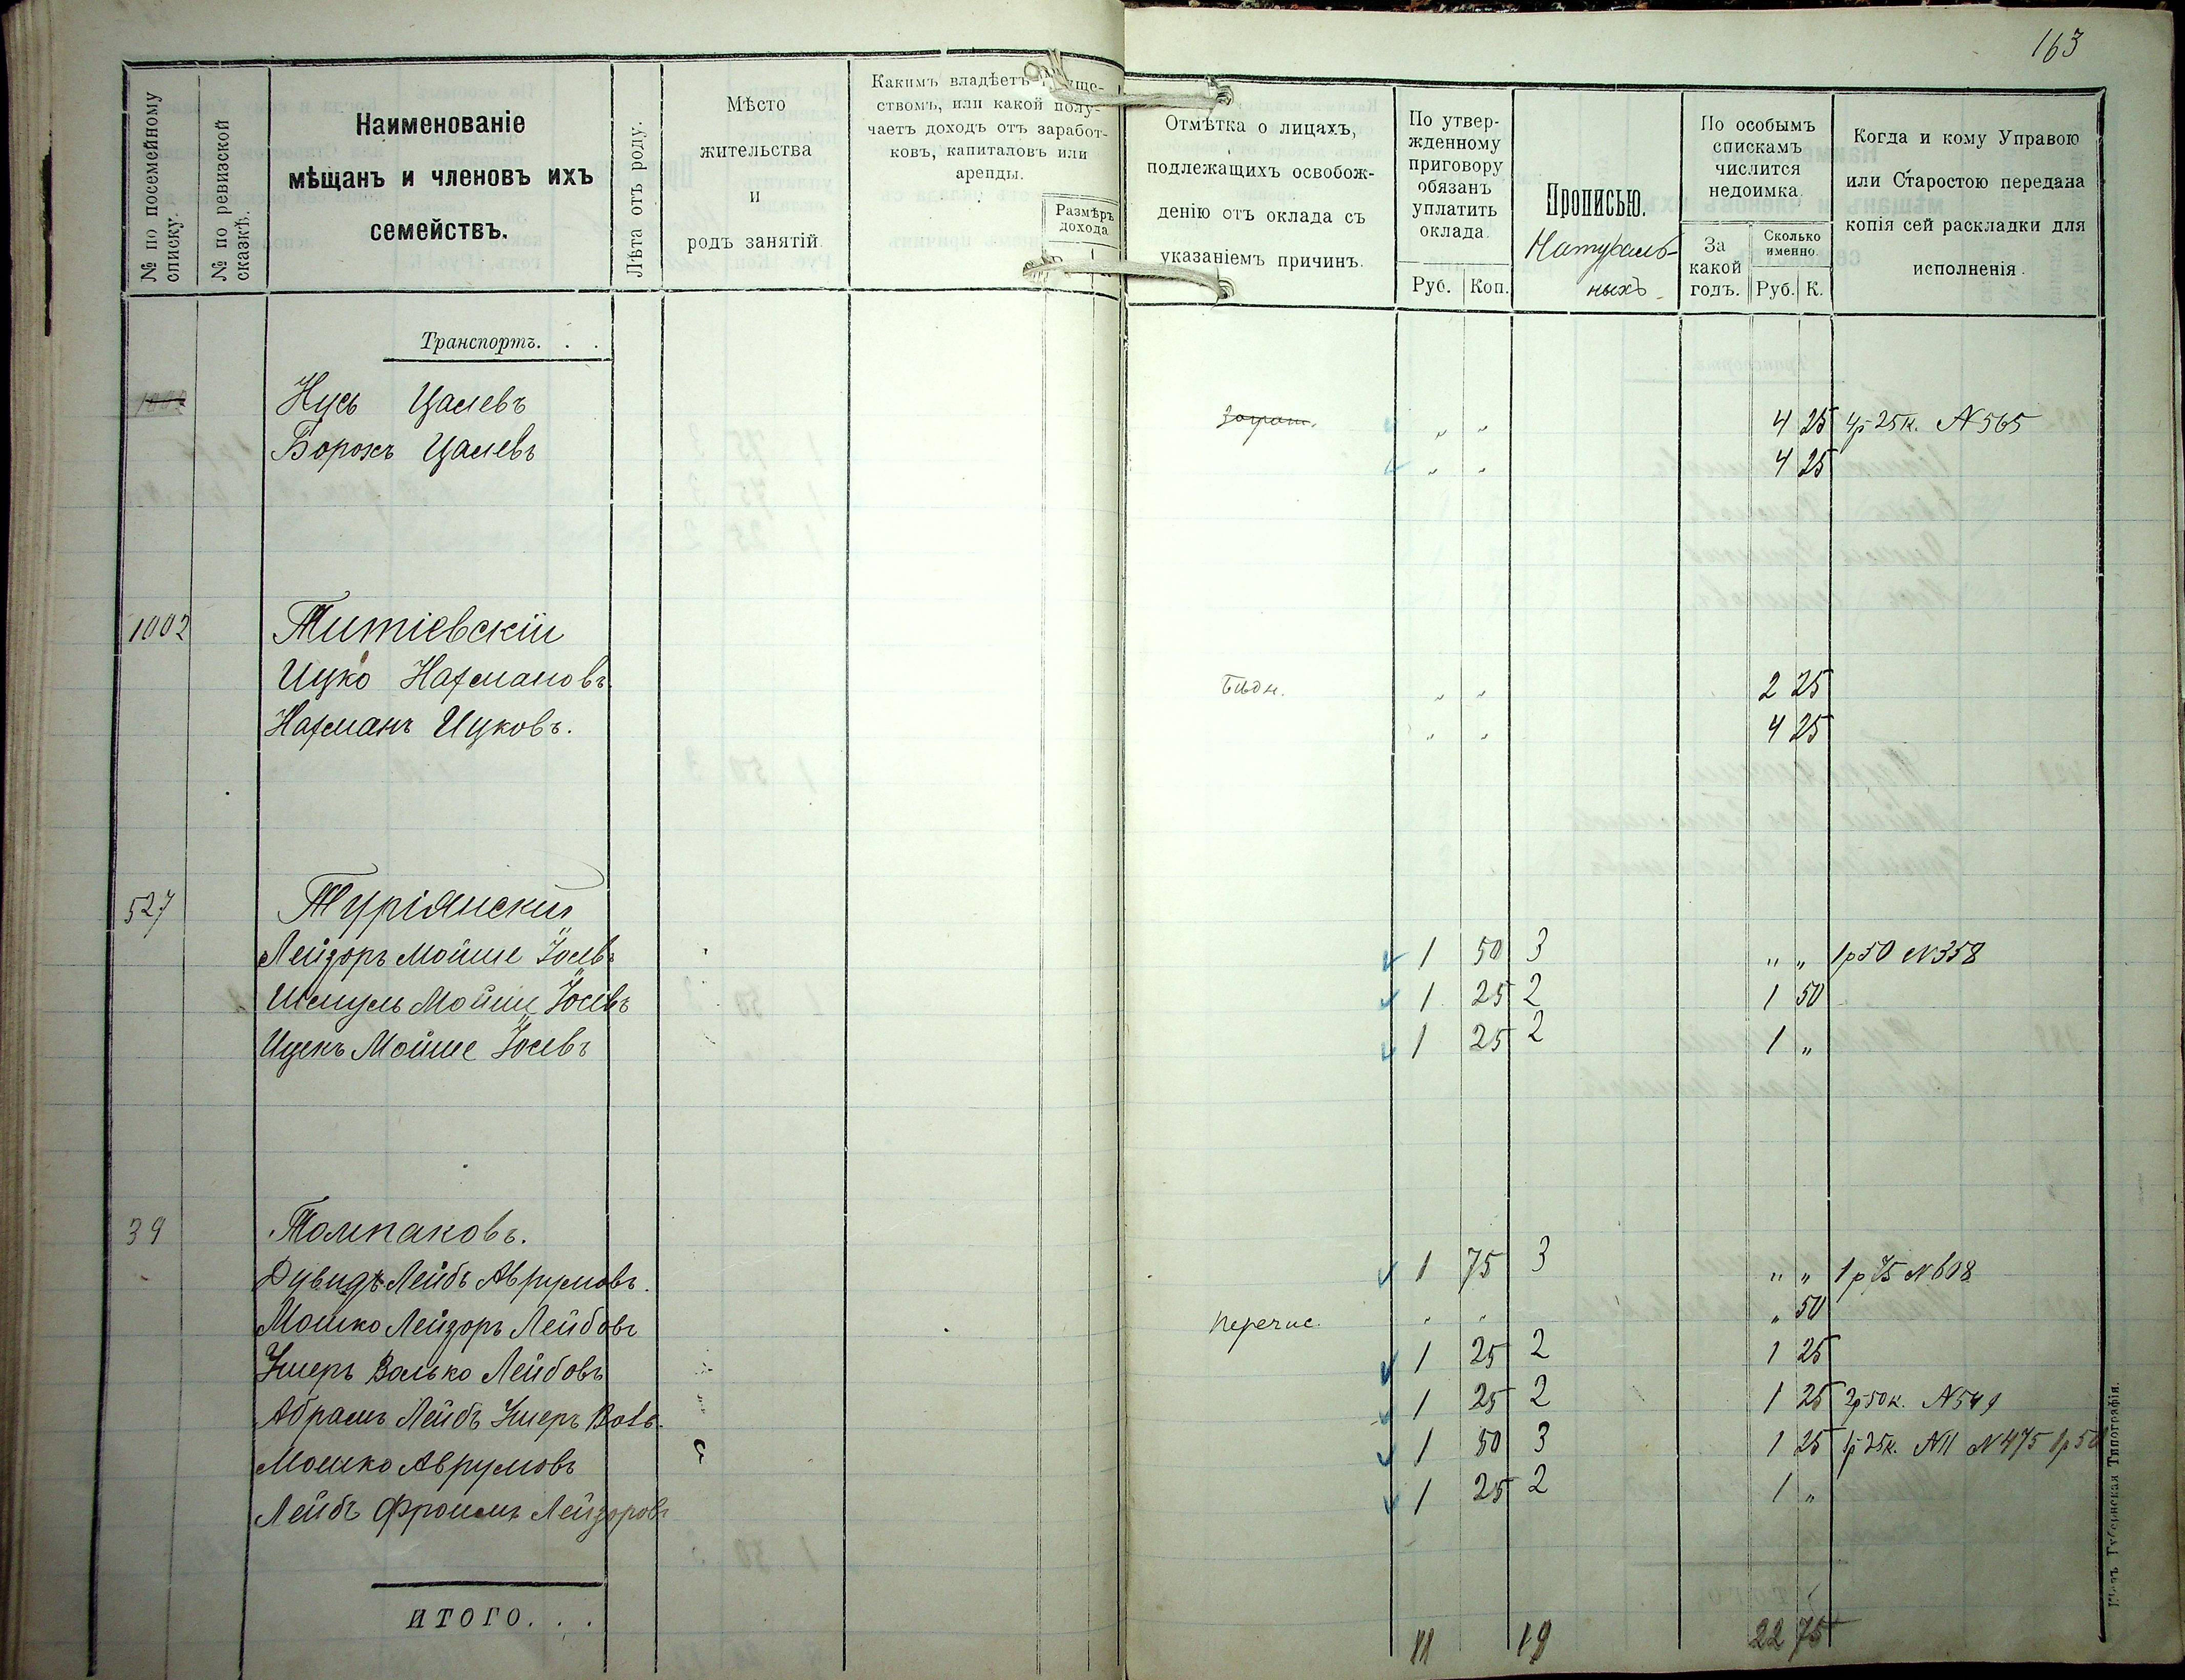 163
№ по посемейному списку.
№ по ревизской сказкѣ.
Наименованіе
мѣщанъ и членовъ ихъ
семействъ.
Лѣта отъ роду.
Мѣсто
жительства
и
родъ занятій.
Какимъ владѣетъ
ствомъ, или какой полу-
чаетъ доходъ отъ заработ-
ковъ, капиталовъ или
аренды.
Размѣръ
дохода
Отмѣтка о лицахъ,
подлежащихъ освобож-
денію отъ оклада съ
указаніемъ причинъ.
По утвер-
жденному
приговору
обязанъ
уплатить
оклада.
Руб. Коп.
Прописью.
Натураль-
ныхъ
По особымъ
спискамъ
числится
недоимка.
За
какой
годъ.
Сколько
именно.
Руб. К.
Когда и кому Управою
или Старостою передана
копія сей раскладки для
исполненія.
Транспортъ. . .
1002 Нусь Цалевъ " " 4 25 4р 25к. N 565
Борохъ Цалевъ " " 4 25
1002 Титіевскій
Ицко Нахмановъ. Бѣдн. " " 2 25
Нахманъ Ицковъ. " " 4 25
527 Туріянскій
Лейзоръ Мойше Іосевъ 1 50 3 " " 1р50 N358
Шмуль Мойше Іосевъ 1 25 2 1 50
Ицекъ Мойше Іосевъ 1 25 2 1 "
39 Толпаковъ.
Дувидъ Лейбъ Аврумовъ. 1 75 3 " " 1р75 N608
Мошко Лейзоръ Лейбовъ Перечис. " " " 50
Ушеръ Волько Лейбовъ 1 25 2 1 25
Абрамъ Лейбъ Ушеръ Вольк. 1 25 2 1 25 2р50к. N549
Мошко Аврумовъ 1 50 3 1 25 1р25к. N11 N475 1р50
Лейбъ Фроимъ Лейзоровъ 1 25 2 1 "
ИТОГО. . .
11 19 22 75
Губернская Типографія.